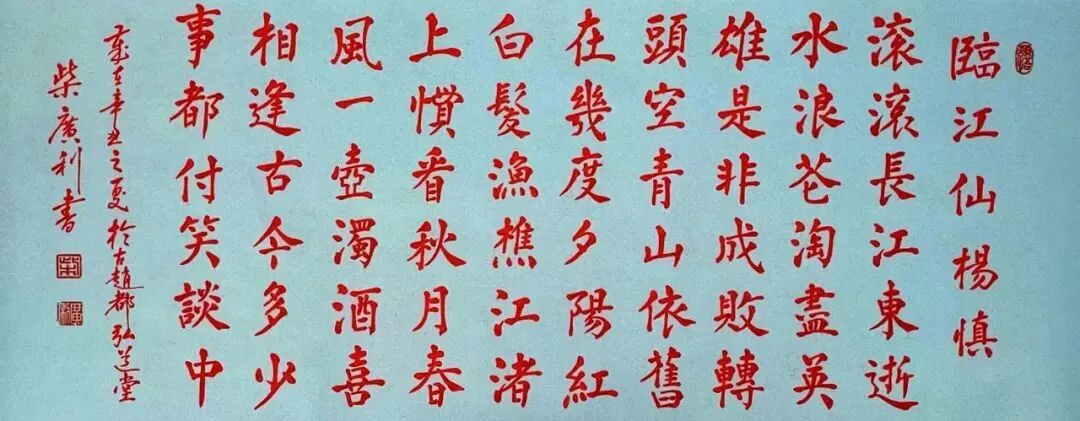 臨江仙楊慎
滚滚長江東逝
水浪花淘盡英
雄是非成敗轉
頭空青山依舊
在幾度夕陽紅
白髮漁樵江渚
上慣看秋月春
風一壺濁酒喜
相逢古今多少
事都付笑談中
歲在辛丑之夏於古趙都弘道堂
柴廣利書